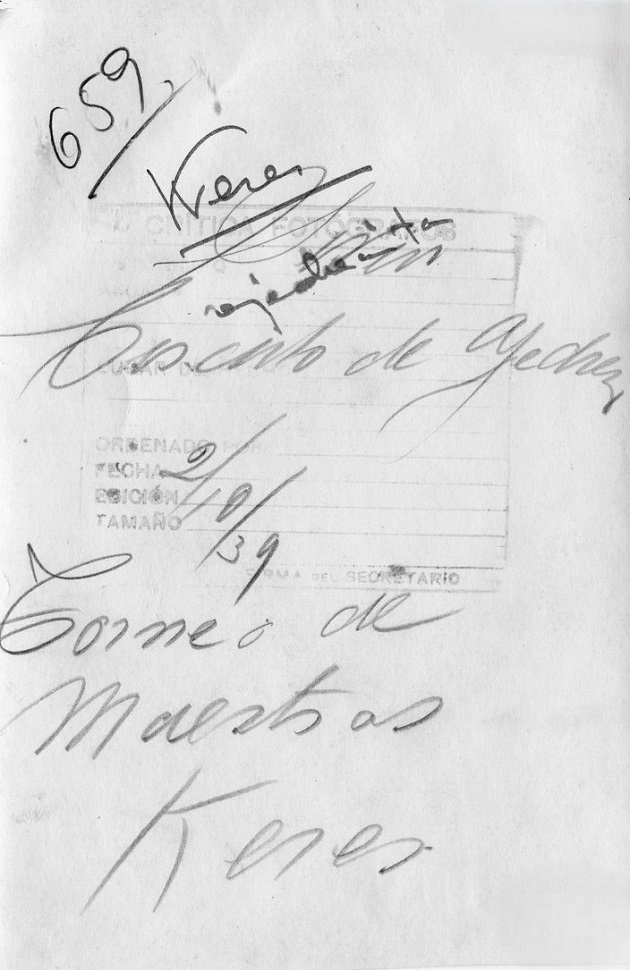 659
Keres
CRITICA FOTOGRAFOS
ajedrecista
de Ajedrez
LUGAR
ORDENADO POR
FECHA 2/10/39
EDICIÓN
TAMAÑO
FIRMA DEL SECRETARIO
Torneo de
Maestros
Keres